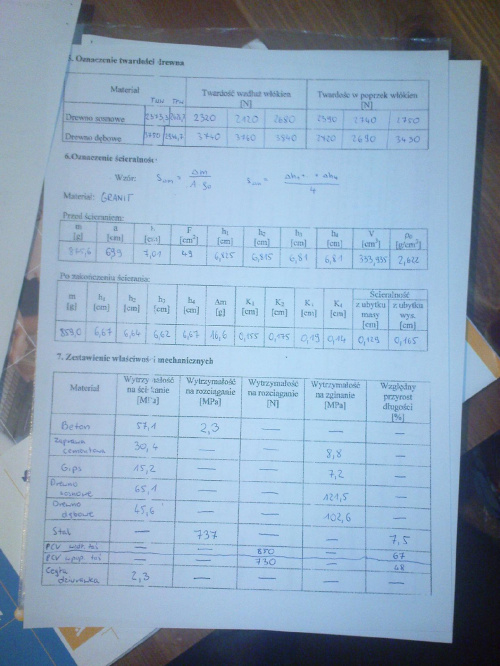 . Oznaczenie twardości drewna
Materiał Twardość wzdłuż włókien [N] Twardość w poprzek włókien [N]
Drewno sosnowe 2320 2120 2680 2590 2740 2700
Drewno dębowe 3740 3840 2820 2690 3430
6.Oznaczenie ścieralności
Wzór:
Materiał: GRANIT
Przed ścieraniem:
m [g] a [cm] [cm] F [cm²] h₁ [cm] h₂ [cm] h₃ [cm] h₄ [cm] V [cm³] ρ₀ [g/cm³]
6,99 7,01 49 6,825 6,815 6,81 6,81 333,935 2,622
Po zakończeniu ścierania:
m [g] h₁ [cm] h₂ [cm] h₃ [cm] h₄ [cm] Δm [g] K₁ [cm] K₂ [cm] K [cm] K₄ [cm] Ścieralność
z ubytku masy [cm] z ubytku wys. [cm]
859,0 6,67 6,64 6,62 6,67 16,6 0,155 0,175 0,19 0,14 0,129 0,165
7. Zestawienie właściwości mechanicznych
Materiał Wytrzymałość na ściskanie [MPa] Wytrzymałość na rozciąganie [MPa] Wytrzymałość na rozciąganie [N] Wytrzymałość na zginanie [MPa] Względny przyrost długości [%]
Beton 57,1 2,3 — — —
Zaprawa cementowa 30,4 — — 8,8 —
Gips 15,2 — — 7,2 —
Drewno sosnowe 65,1 — — 121,5 —
Drewno dębowe 45,6 — — 102,6 —
Stal — 737 — — 7,5
PCV — — 870 — 67
PCV — — 730 — 68
Cegła dziurawka 2,3 — — — —